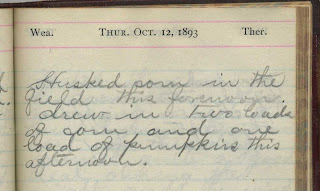 Wea. THUR. OCT. 12, 1893 Ther.
Husked corn in the
field this forenoon,
drew in two loads
of corn and one
load of pumpkins this
afternoon.